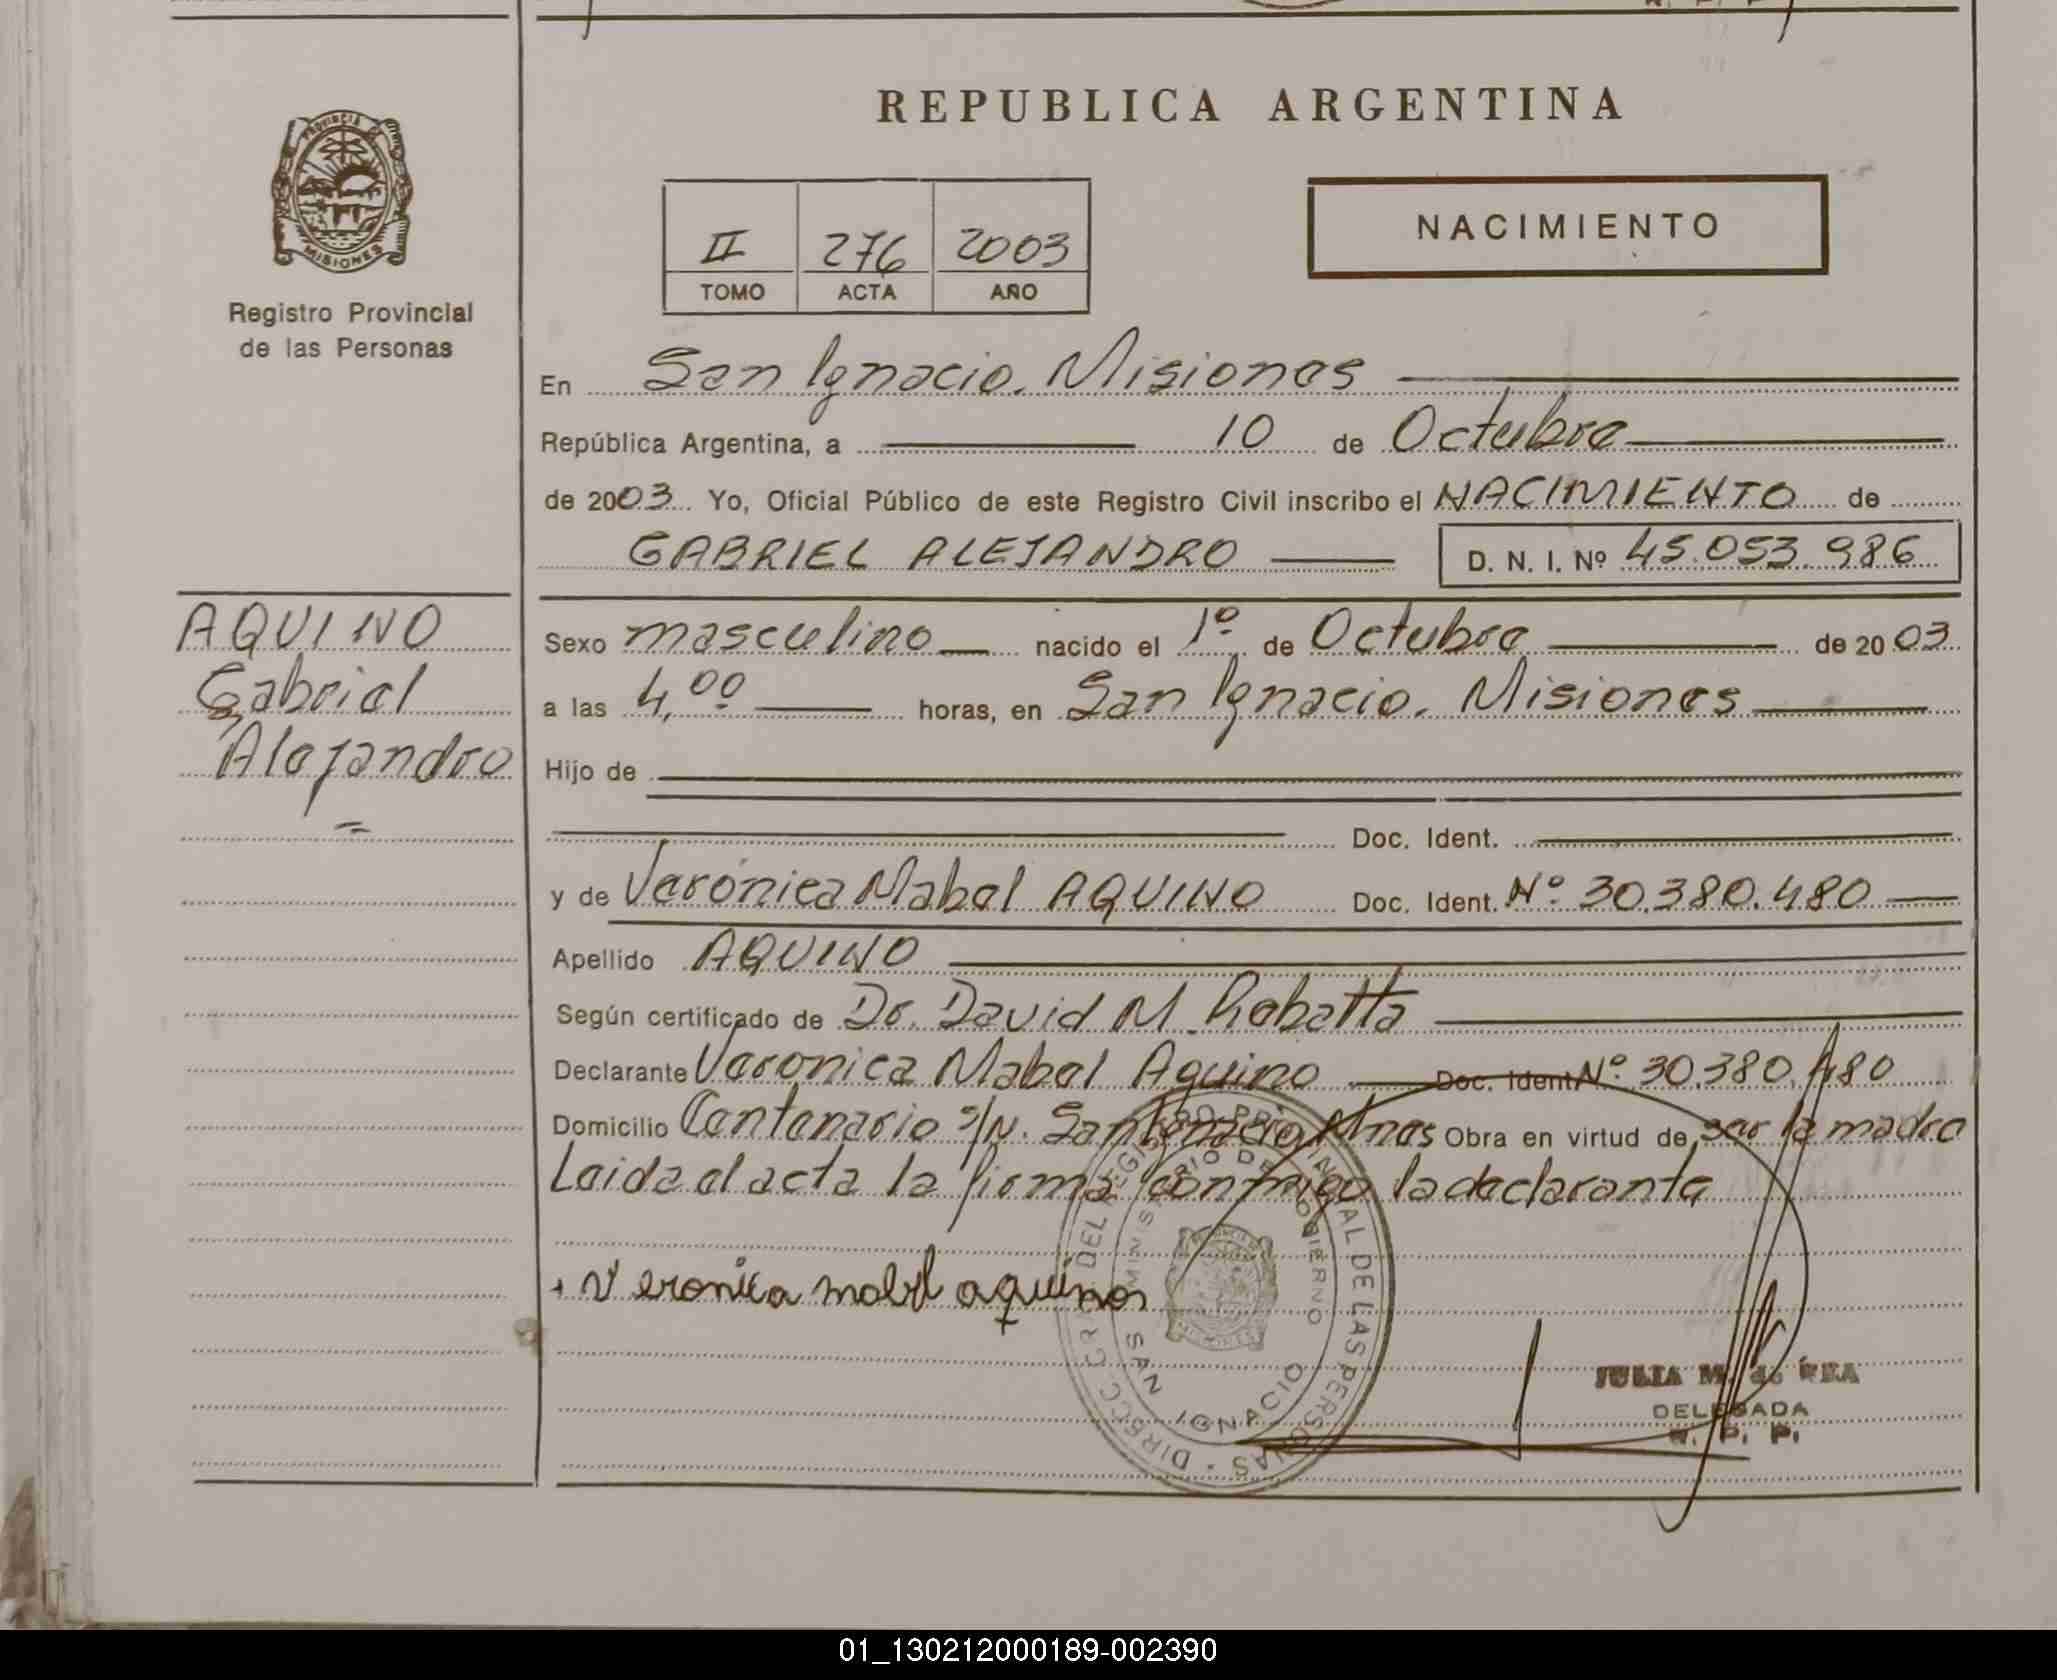 REPUBLICA ARGENTINA
PROVINCIA DE MISIONES
Registro Provincial
de las Personas
II 276 2003
TOMO ACTA AÑO
NACIMIENTO
En San Ignacio. Misiones
República Argentina, a 10 de Octubre
de 2003 Yo, Oficial Público de este Registro Civil inscribo el NACIMIENTO de
GABRIEL ALEJANDRO D. N. I. Nº 45.053.986
AQUINO
Gabriel
Alejandro
Sexo masculino nacido el 1º de Octubre de 2003
a las 4,00 horas, en San Ignacio. Misiones
Hijo de
Doc. Ident.
y de Verónica Mabel AQUINO Doc. Ident. Nº 30.380.480
Apellido AQUINO
Según certificado de Dr. David M. Robatta
Declarante Veronica Mabel Aquino Doc. Ident Nº 30.380.480
Domicilio Centenario s/N. San Ignacio Mnes Obra en virtud de ser la madre
Leida el acta la firma conmigo la declarante
Veronica mabel aquino
DIRECC. GRAL. DEL REGISTRO PROVINCIAL DE LAS PERSONAS
MINISTERIO DE GOBIERNO
SAN IGNACIO
JULIA M. de REA
DELEGADA
R. P. P.
01_130212000189-002390